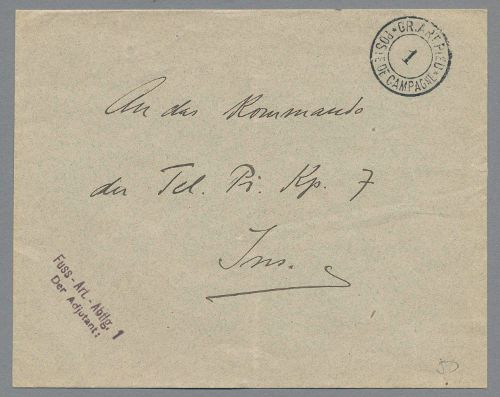 GR. ART. PIED
1
POSTE DE CAMPAGNE
An das Kommando
der Tel. Pi. Kp. 7
Ins.
Fuss - Art. - Abtlg. 1
Der Adjutant: